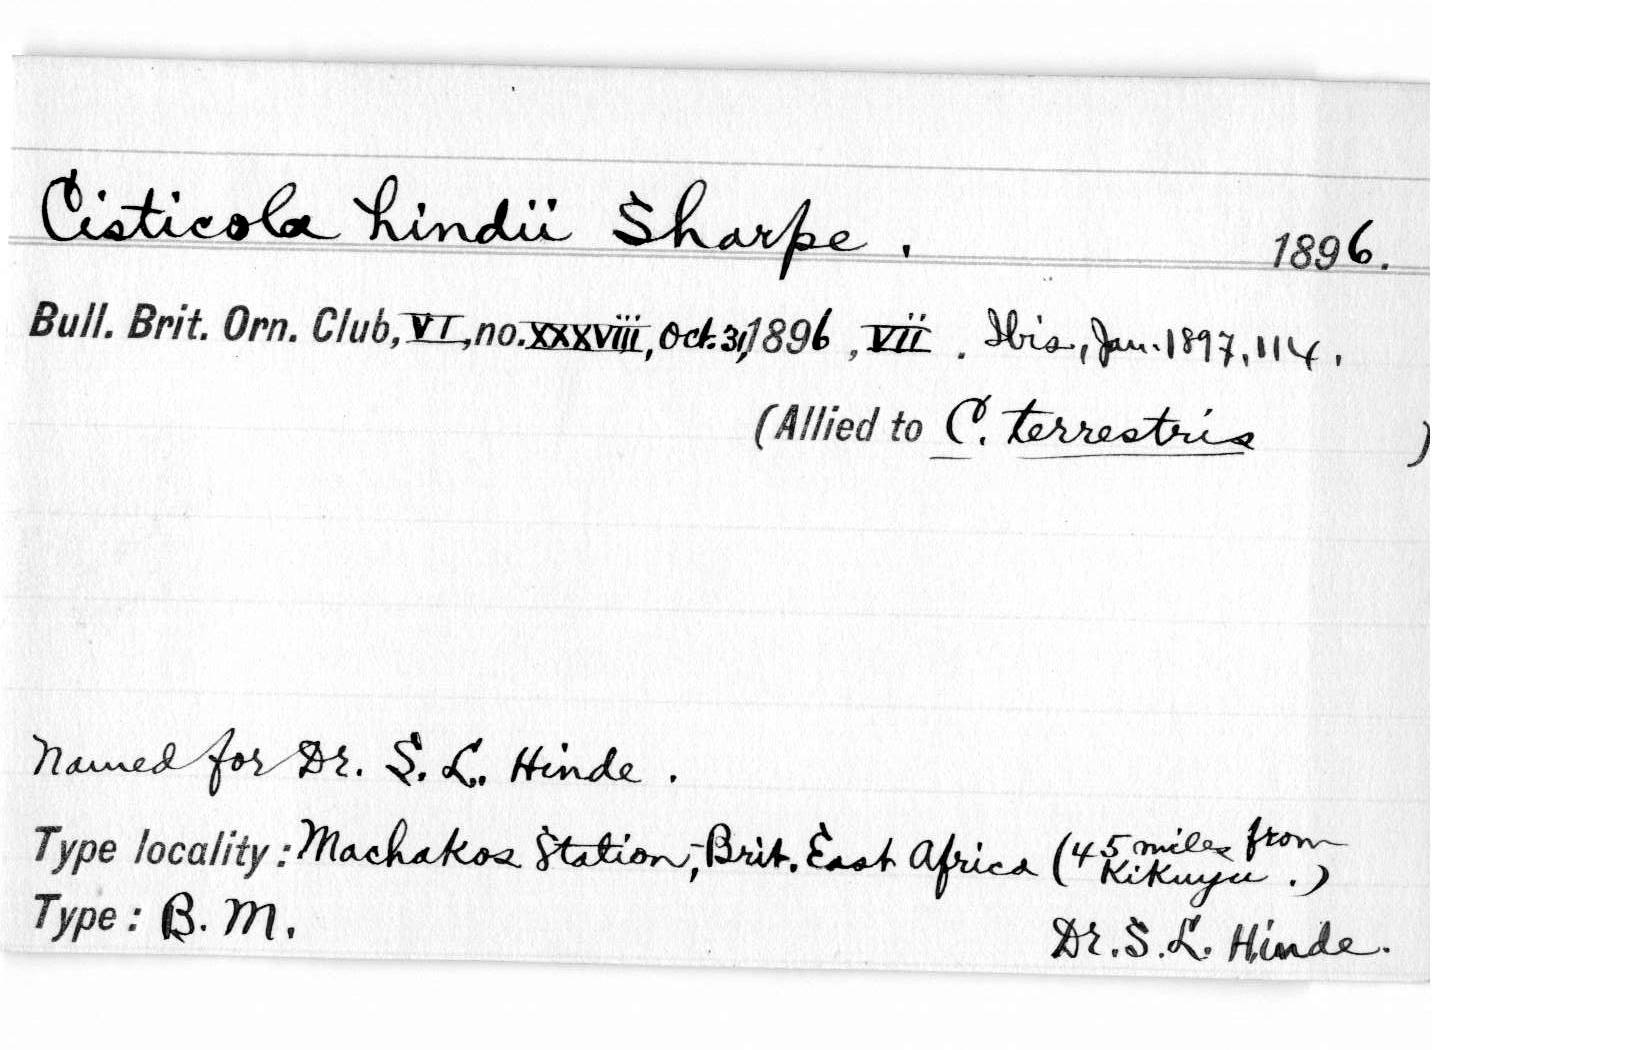 Cisticola hindii Sharpe. 1896.
Bull. Brit. Orn. Club, VI, no. xxxviii, Oct. 31, 1896, vii. Ibis, Jan. 1897, 114.
(Allied to C. terrestris )
Named for Dr. S. L. Hinde.
Type locality: Machakos Station, Brit. East Africa (45 miles from
Kikuyu.)
Type: B. M. Dr. S. L. Hinde.